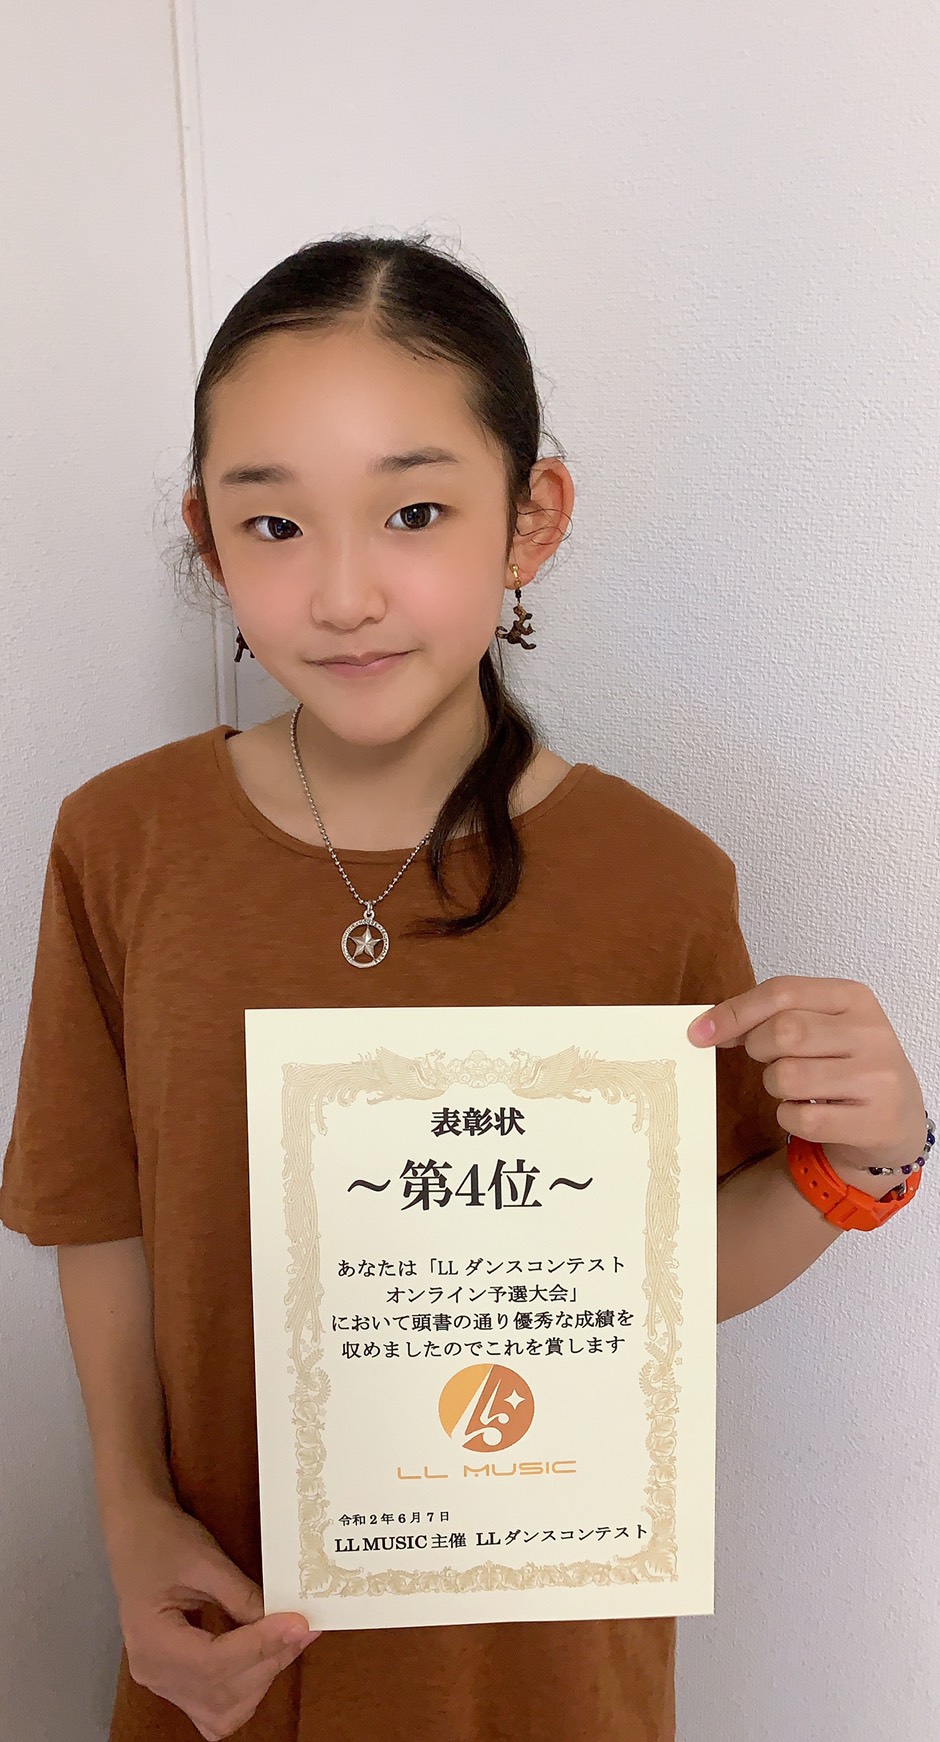 表彰状
～第4位～
あなたは「LL ダンスコンテスト
オンライン予選大会」
において頭書の通り優秀な成績を
収めましたのでこれを賞します
LL MUSIC
令和2年6月7日
LL MUSIC 主催 LL ダンスコンテスト